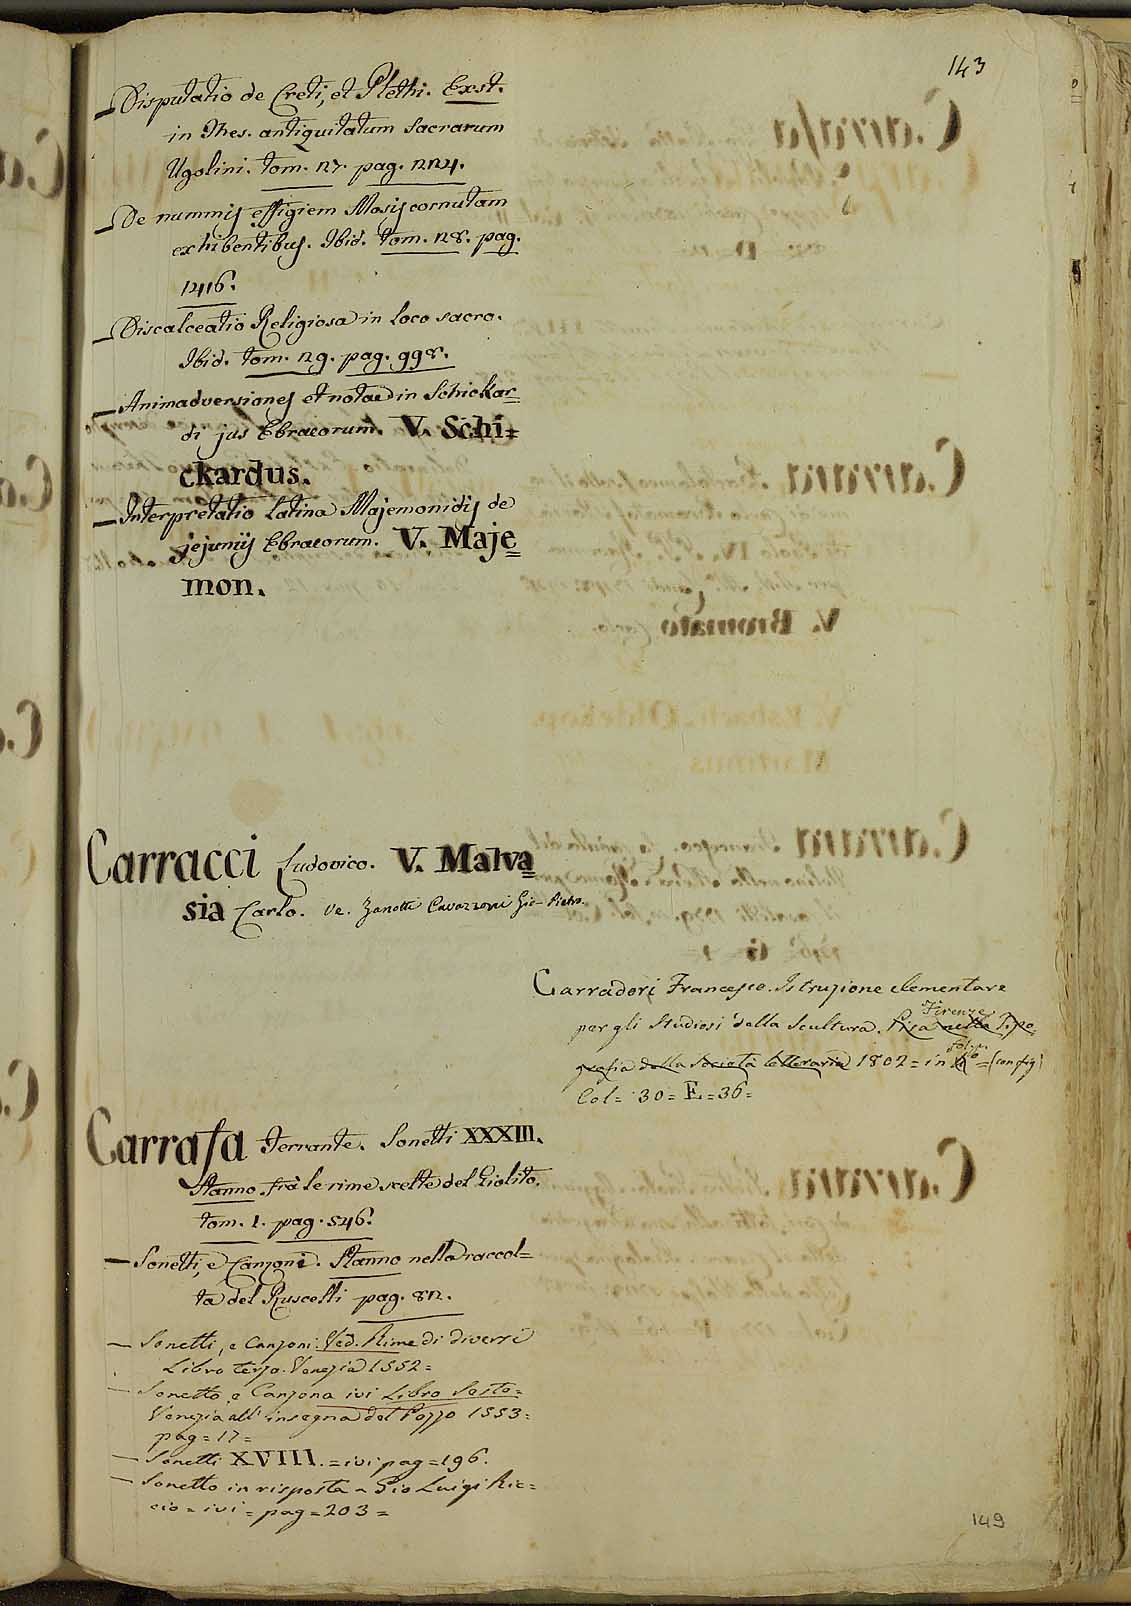 143
— Disputatio de Creti, et Plethi. Exst.
in Thes. antiquitatum sacrarum
Ugolini. tom. 27. pag. 224.
— De nummis effigiem Mosis cornutam
exhibentibus. Ibid. tom. 28. pag.
1216.
— Discalceatio Religiosa in loco sacro.
Ibid. tom. 29. pag. 998.
— Animadversiones et notae in Schickar=
di jus Ebraeorum. V. Schi=
ckardus.
— Interpretatio latina Majemonidis de
jejuniis Ebraeorum. V. Maje=
mon.
Carracci Ludovico. V. Malva=
sia Carlo. Ve. Zanotti Cavazzoni Gio- Pietro.
Carradori Francesco. Istruzione elementare
per gli Studiosi della Scultura. Firenze Pisa nella Tipo=
grafia della Società letteraria 1802 = in fol. p. 4º = (con fig)
Col = 30 = E = 36 =
Carrafa Ferrante. Sonetti XXXIII.
Stanno frà le rime scelte del Giolito.
tom. 1. pag. 546.
— Sonetti, e Canzoni. Stanno nella raccol=
ta del Ruscelli pag. 82.
— Sonetti, e Canzoni. Ved. Rime di diversi
Libro terzo. Venezia 1552 =
— Sonetto, e Canzona ivi Libro Sesto =
Venezia all' insegna del Pozzo 1553 =
pag = 17 =
— Sonetti XVIII. = ivi pag = 196.
— Sonetto in risposta a Gio Luigi Ric=
cio = ivi = pag = 203 =
149